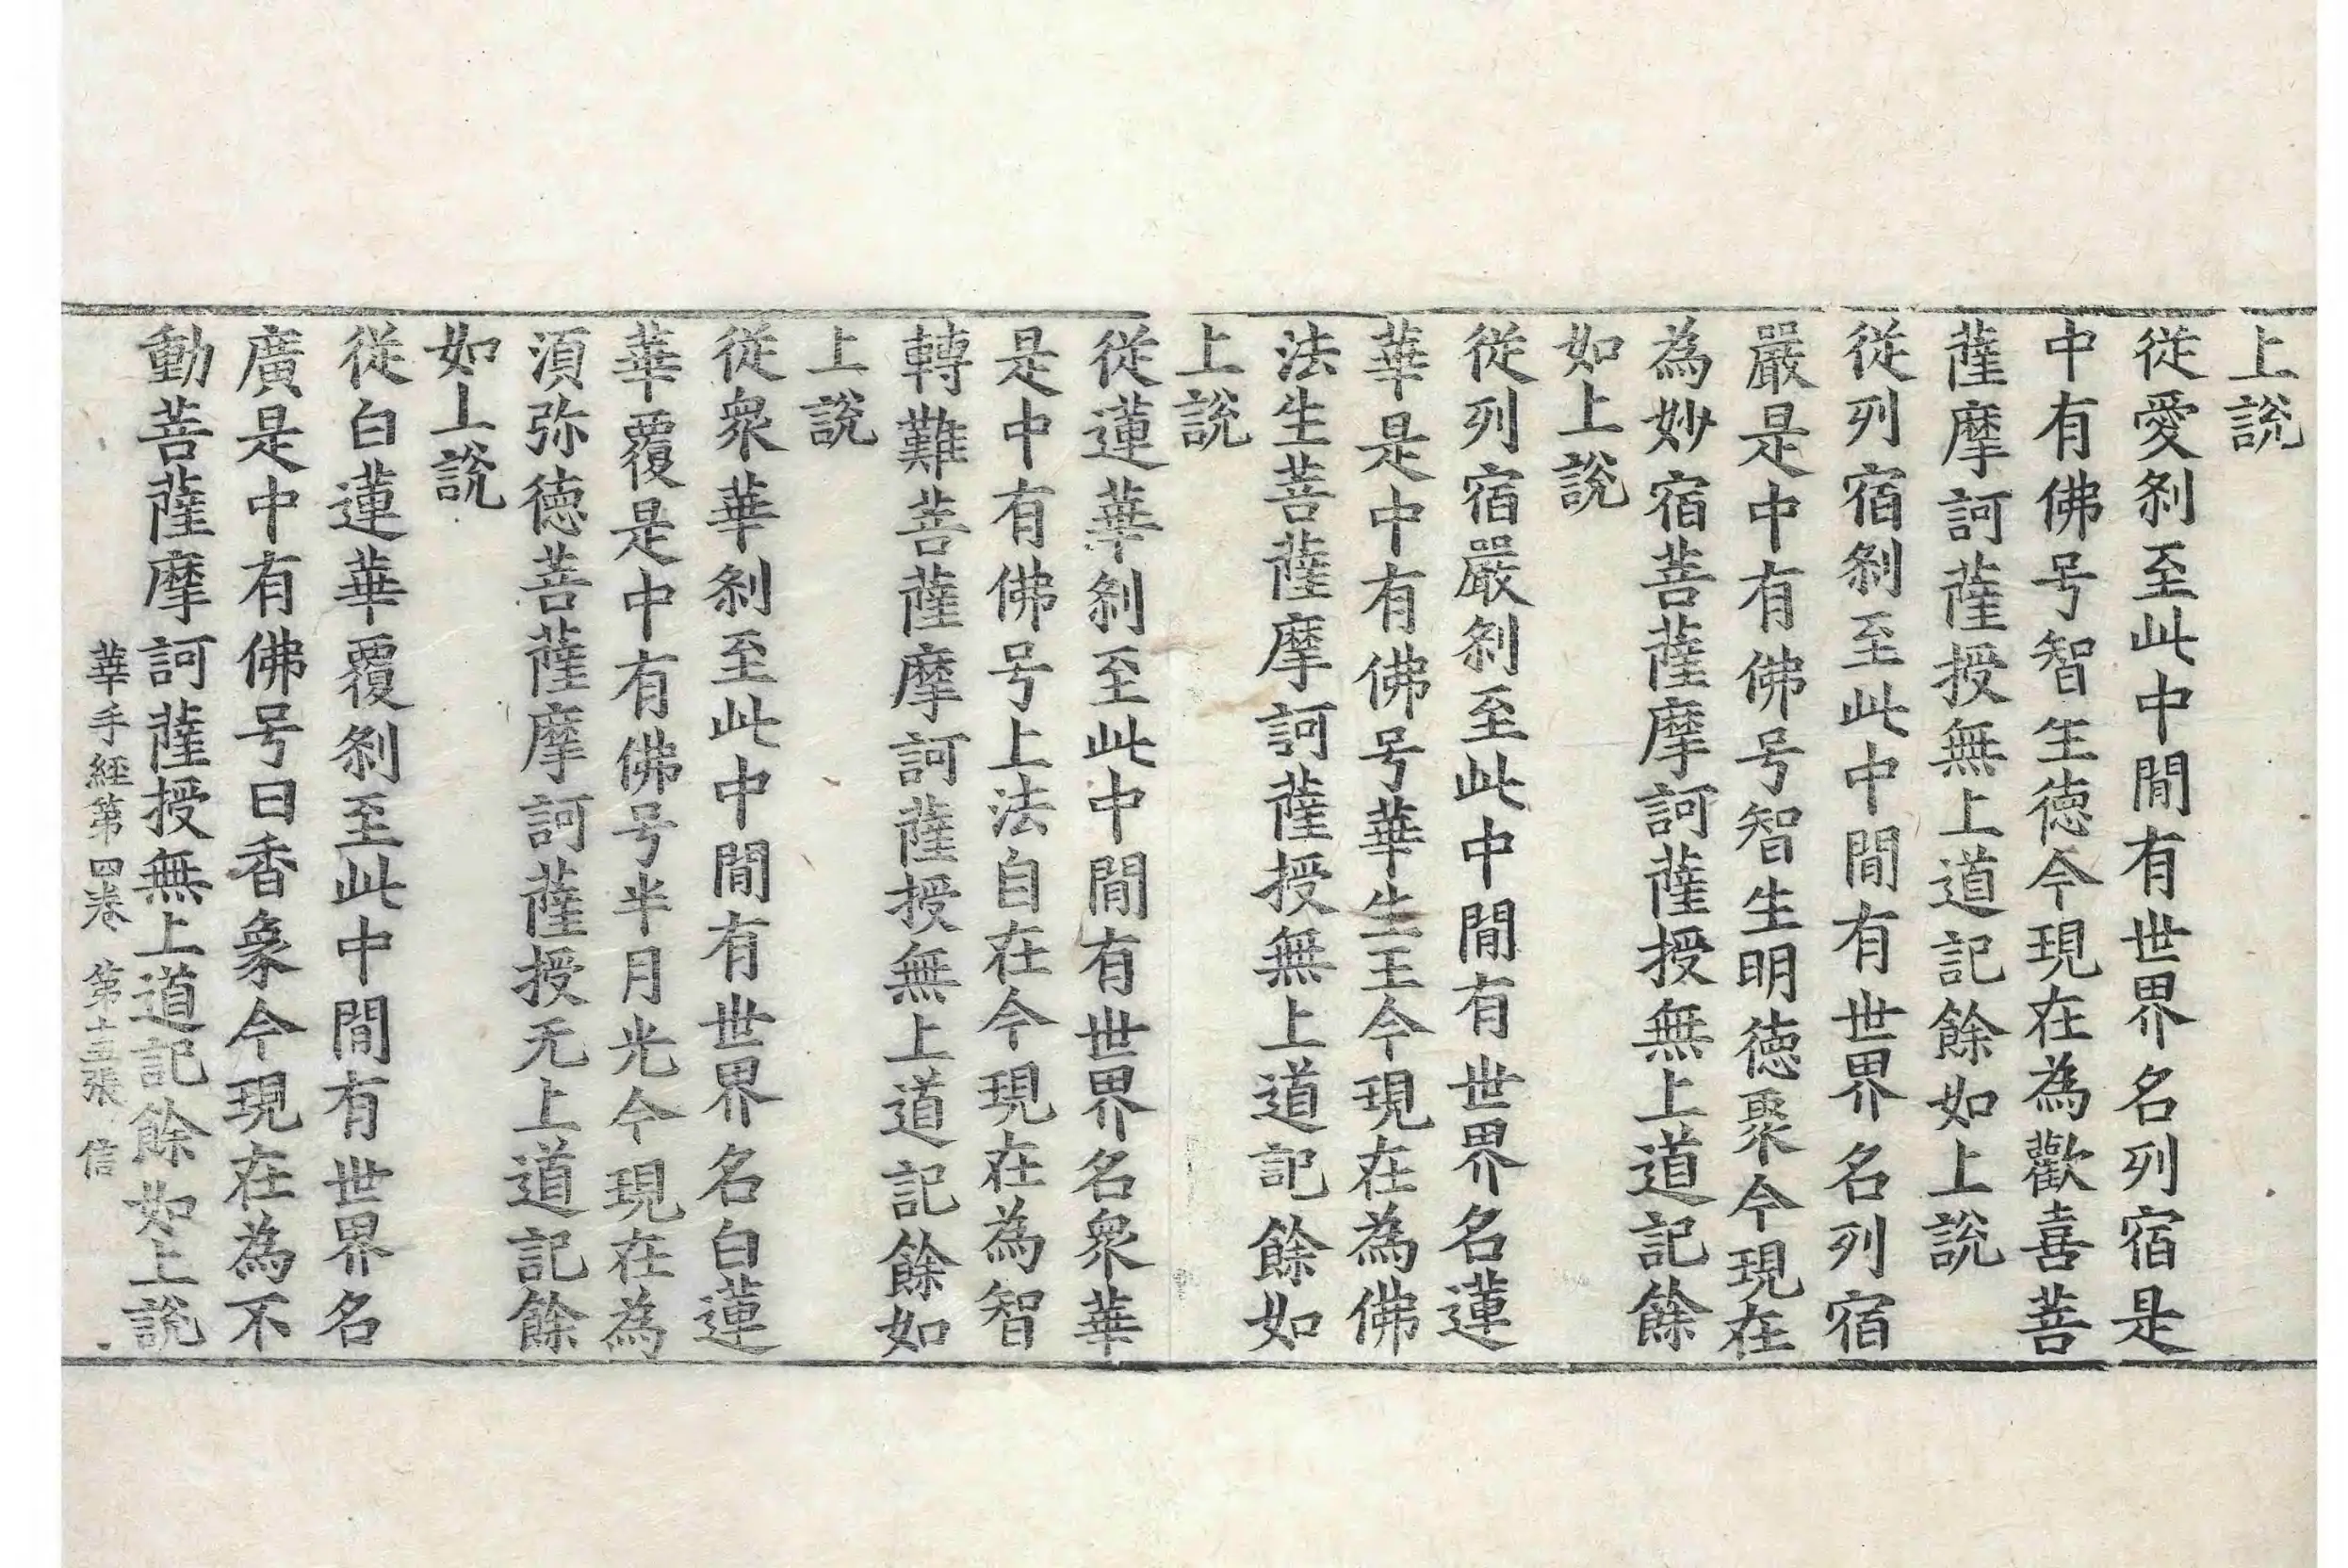 上說
從愛剎至此中閒有世界名列宿是
中有佛号智生德今現在為歡喜菩
薩摩訶薩授無上道記餘如上說
從列宿剎至此中閒有世界名列宿
嚴是中有佛号智生明德聚今現在
為妙宿菩薩摩訶薩授無上道記餘
如上說
從列宿嚴剎至此中閒有世界名蓮
華是中有佛号華生王今現在為佛
法生菩薩摩訶薩授無上道記餘如
上說
從蓮華剎至此中閒有世界名衆華
是中有佛号上法自在今現在為智
轉難菩薩摩訶薩授無上道記餘如
上說
從衆華剎至此中閒有世界名白蓮
華覆是中有佛号半月光今現在為
湏弥德菩薩摩訶薩授无上道記餘
如上說
從白蓮華覆剎至此中閒有世界名
廣是中有佛号曰香象今現在為不
動菩薩摩訶薩授無上道記餘如上說
華手經第四卷 第十三張 信